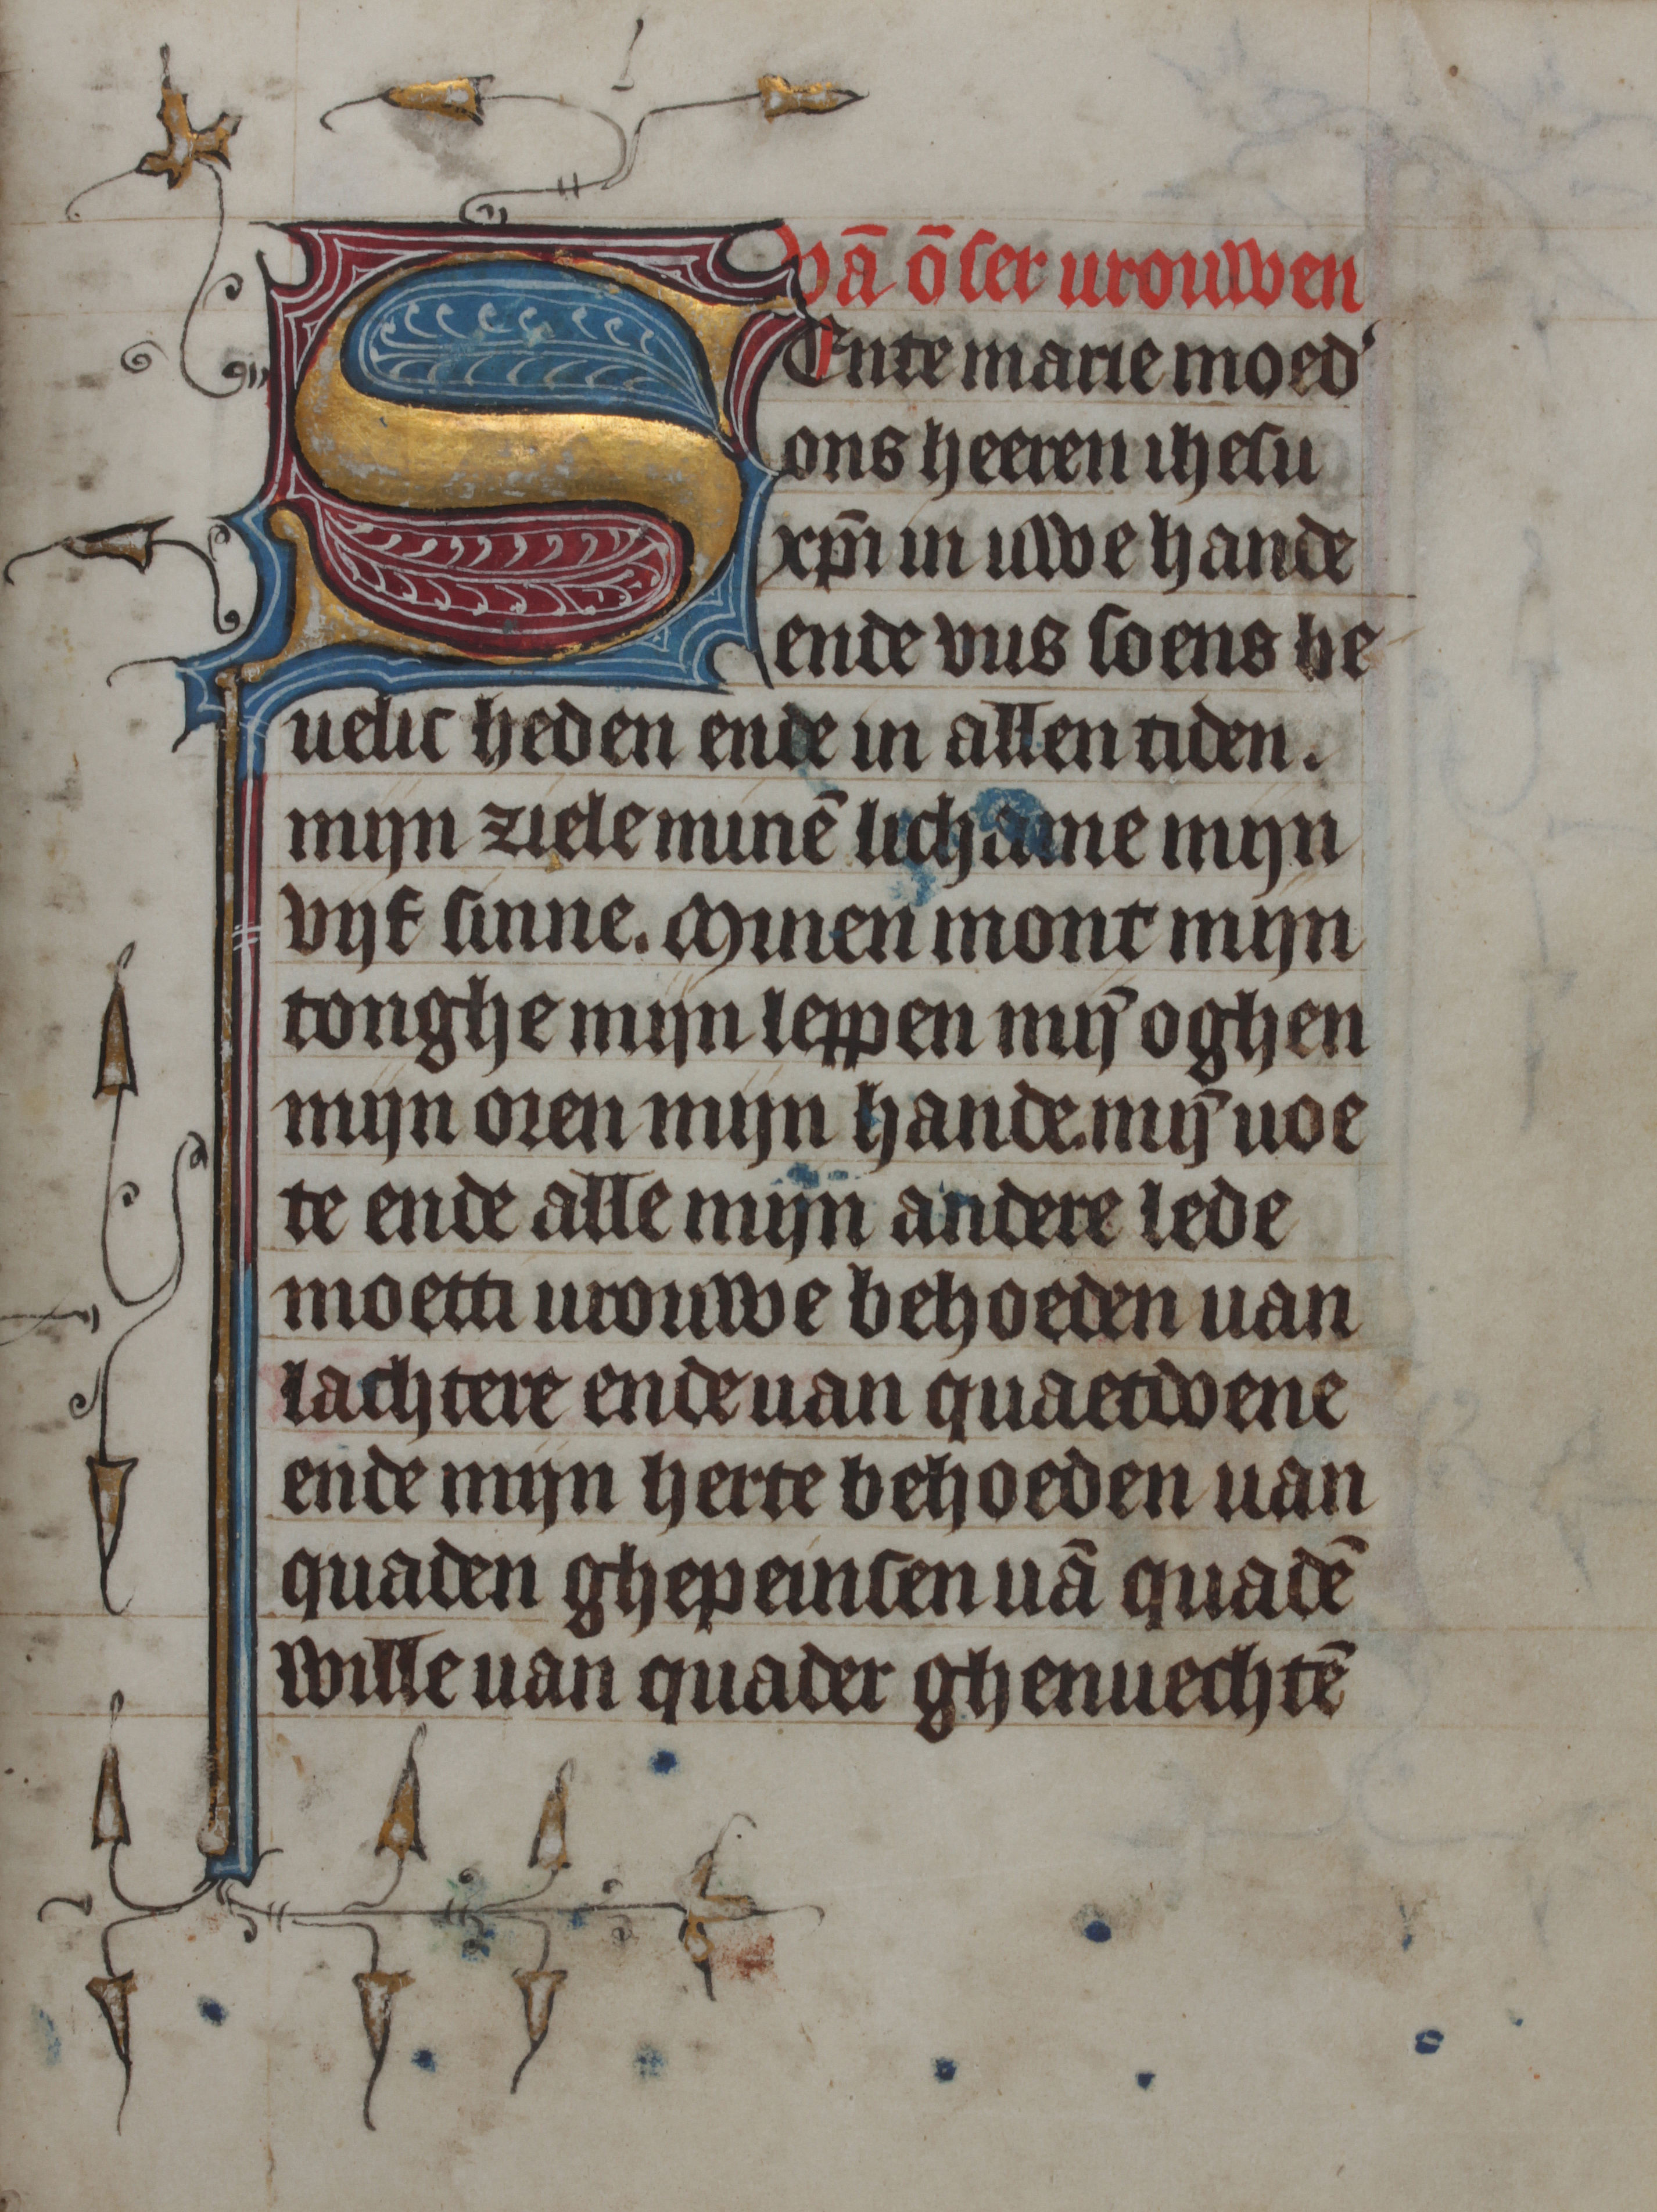 vā ōser urouwen
SEnte marie moed'
ons heeren ihesu
xpī in uwe hande
ende uus soens be
uelic heden ende in allen tiden.
mijn ziele minē lichame mijn
vijf sinne. Minen mont mijn
tonghe mijn leppen mij̄ oghen
mijn oren mijn hande. mij̄ uoe
te ende alle mijn andere lede
moetti urouwe behoeden uan
lachtere ende uan quaetdoene
ende mijn herte behoeden uan
quaden ghepeinsen uā quadē
wille uan quader ghenuechtē